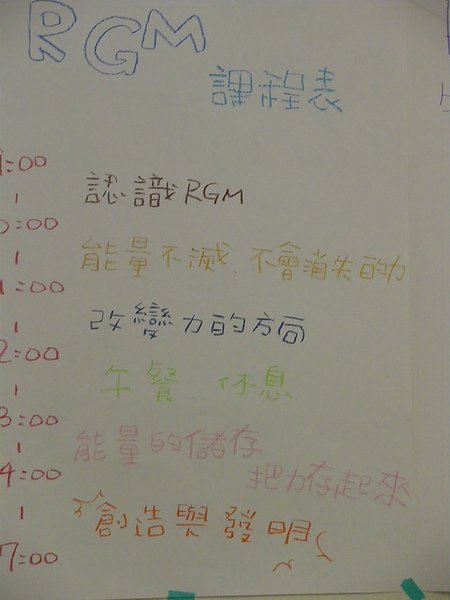 RGM
課程表
:00
認識RGM
:00
能量不滅、不會消失的力
:00
改變力的方向
2:00
午餐、休息
3:00
能量的儲存
把力存起來
4:00
創造與發明
7:00